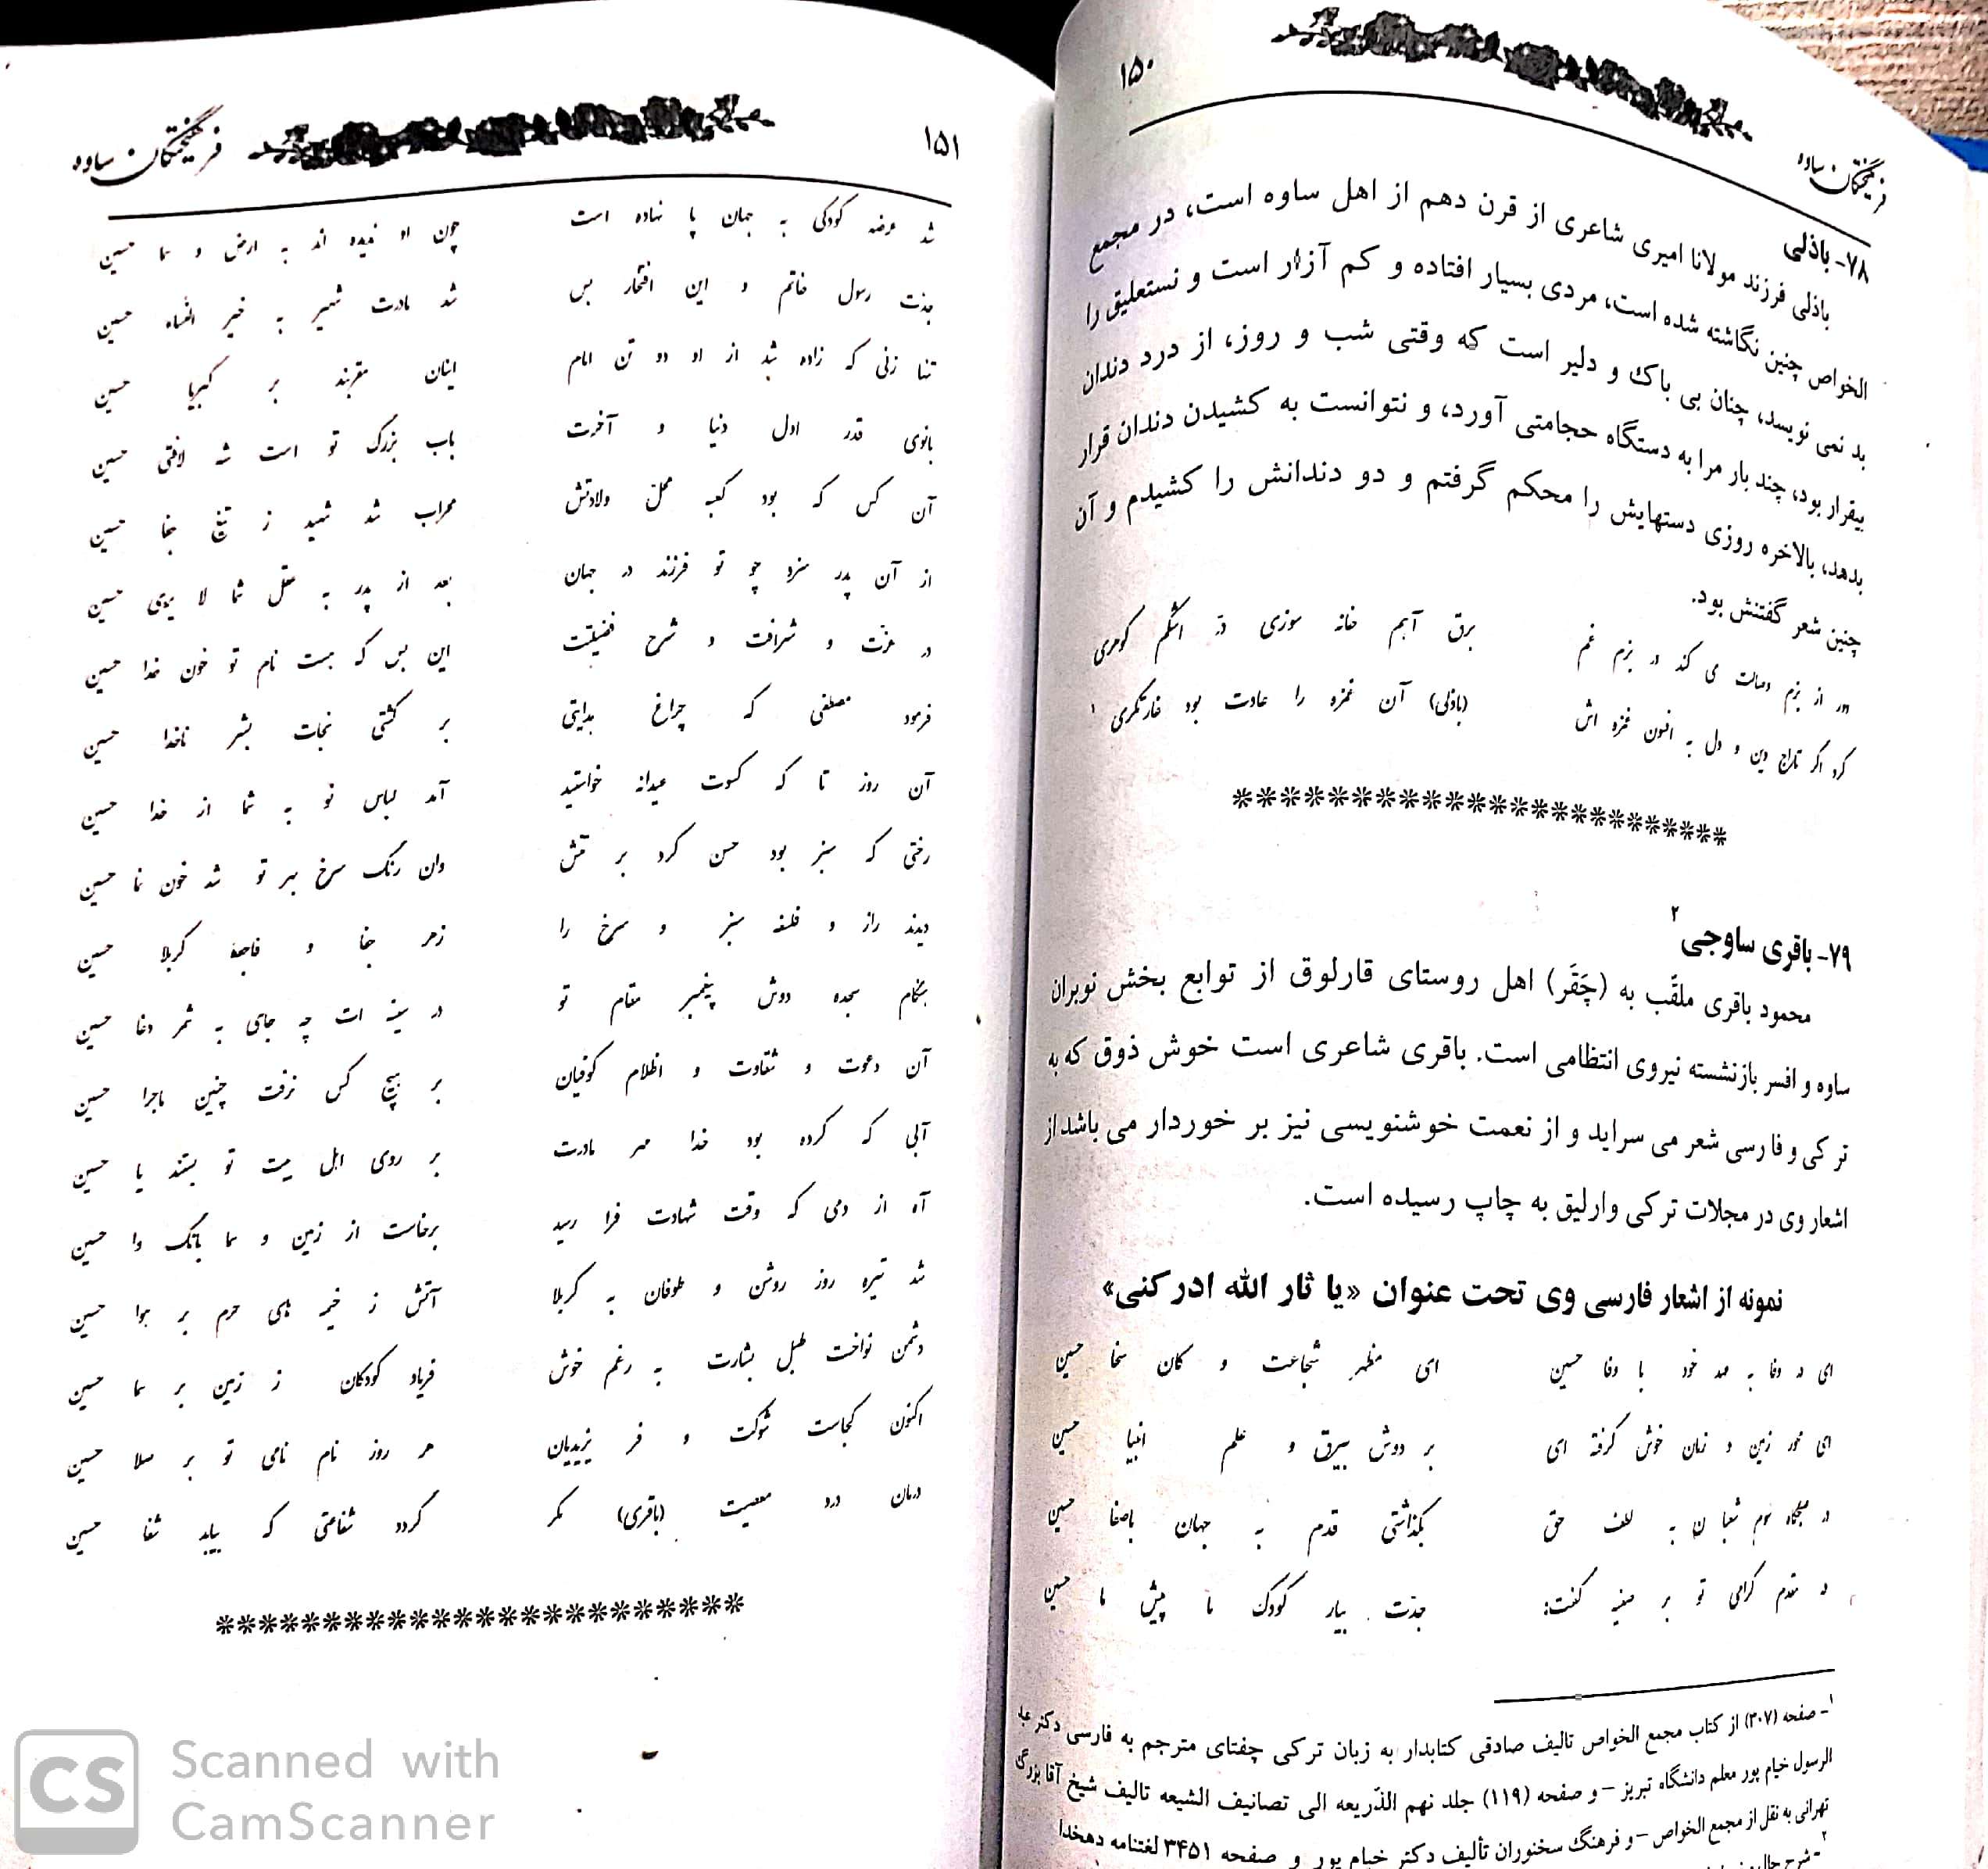 ۱۵۰
فرهیختگان ساوه
۷۸- باذلی
باذلی فرزند مولانا امیری شاعری از قرن دهم از اهل ساوه است، در مجمع
الخواص چنین نگاشته شده است، مردی بسیار افتاده و کم آزار است و نستعلیق را
بد نمی نویسد، چنان بی باک و دلیر است که وقتی شب و روز، از درد دندان
بیقرار بود، چند بار مرا به دستگاه حجامتی آورد، و نتوانست به کشیدن دندان قرار
بدهد، بالاخره روزی دستهایش را محکم گرفتم و دو دندانش را کشیدم و آن
چنین شعر گفتنش بود.
دور از بزم وصالت می کند در بزم غم برق آهم خانه سوزی در اشکم گوهری
کرد اگر تاراج دین و دل به افسون غمزه اش (باذلی) آن غمزه را عادت بود غارتگری ۱
***********************
۷۹- باقری ساوجی ۲
محمود باقری ملقّب به (چَقَر) اهل روستای قارلوق از توابع بخش نوبران
ساوه و افسر بازنشسته نیروی انتظامی است. باقری شاعری است خوش ذوق که به
ترکی و فارسی شعر می سراید و از نعمت خوشنویسی نیز بر خوردار می باشد از
اشعار وی در مجلات ترکی وارلیق به چاپ رسیده است.
نمونه از اشعار فارسی وی تحت عنوان «یا ثار الله ادرکنی»
ای در وفا به عهد خود با وفا حسین ای مظهر شجاعت و کان سخا حسین
ای محور زمین و زمان خوش گرفته ای بر دوش بیرق و علم انبیا حسین
در صبحگاه سوم شعبان به لطف حق بگذاشتی قدم به جهان باصفا حسین
در مقدم گرامی تو بر صفیه گفت: جدّت بیار کودک ما پیش ما حسین
۱- صفحه (۳۰۷) از کتاب مجمع الخواص تالیف صادقی کتابدار به زبان ترکی چغتای مترجم به فارسی دکتر عبد
الرسول خیام پور معلم دانشگاه تبریز – و صفحه (۱۱۹) جلد نهم الذّریعه الی تصانیف الشیعه تالیف شیخ آقا بزرگ
تهرانی به نقل از مجمع الخواص – و فرهنگ سخنوران تألیف دکتر خیام پور و صفحه ۳۴۵۱ لغتنامه دهخدا
۲- شرح حال و
۱۵۱
فرهیختگان ساوه
شد عرضه کودکی به جهان پا نهاده است چون او ندیده اند به ارض و سما حسین
جدّت رسول خاتم و این افتخار بس شد مادرت شهیر به خیر النساء حسین
تنها زنی که زاده شد از او دو تن امام اینان مقربند بر کبریا حسین
بانوی قدر اول دنیا و آخرت باب بزرگ تو است شه لافتی حسین
آن کس که بود کعبه محلّ ولادتش محراب شد شهید ز تیغ جفا حسین
از آن پدر سزد چو تو فرزند در جهان بعد از پدر به عقل شما لا یری حسین
در عزّت و شرافت و شرح فضیلتت این بس که هست نام تو خون خدا حسین
فرمود مصطفی که چراغ هدایتی بر کشتی نجات بشر ناخدا حسین
آن روز تا که کسوت عیدانه خواستید آمد لباس نو به شما از خدا حسین
رختی که سبز بود حسن کرد بر تنش وان رنگ سرخ بهر تو شد خون نما حسین
دیدند راز و فلسفه سبز و سرخ را زهر جفا و فاجعهٔ کربلا حسین
هنگام سجده دوش پیغمبر مقام تو در سینه ات چه جای به شمر دغا حسین
آن دعوت و شقاوت و اظلام کوفیان بر هیچ کس نرفت چنین ماجرا حسین
آبی که کرده بود خدا مهر مادرت بر روی اهل بیت تو بستند یا حسین
آه از دمی که وقت شهادت فرا رسید برخاست از زمین و سما بانگ وا حسین
شد تیره روز روشن و طوفان به کربلا آتش ز خیمه های حرم بر هوا حسین
دشمن نواخت طبل بشارت به رغم خوش فریاد کودکان ز زمین بر سما حسین
اکنون کجاست شوکت و فر یزیدیان هر روز نام نامی تو بر ملا حسین
درمان درد معصیت (باقری) مگر گردد شفاعتی که بیابد شفا حسین
***********************
CS Scanned with
CamScanner